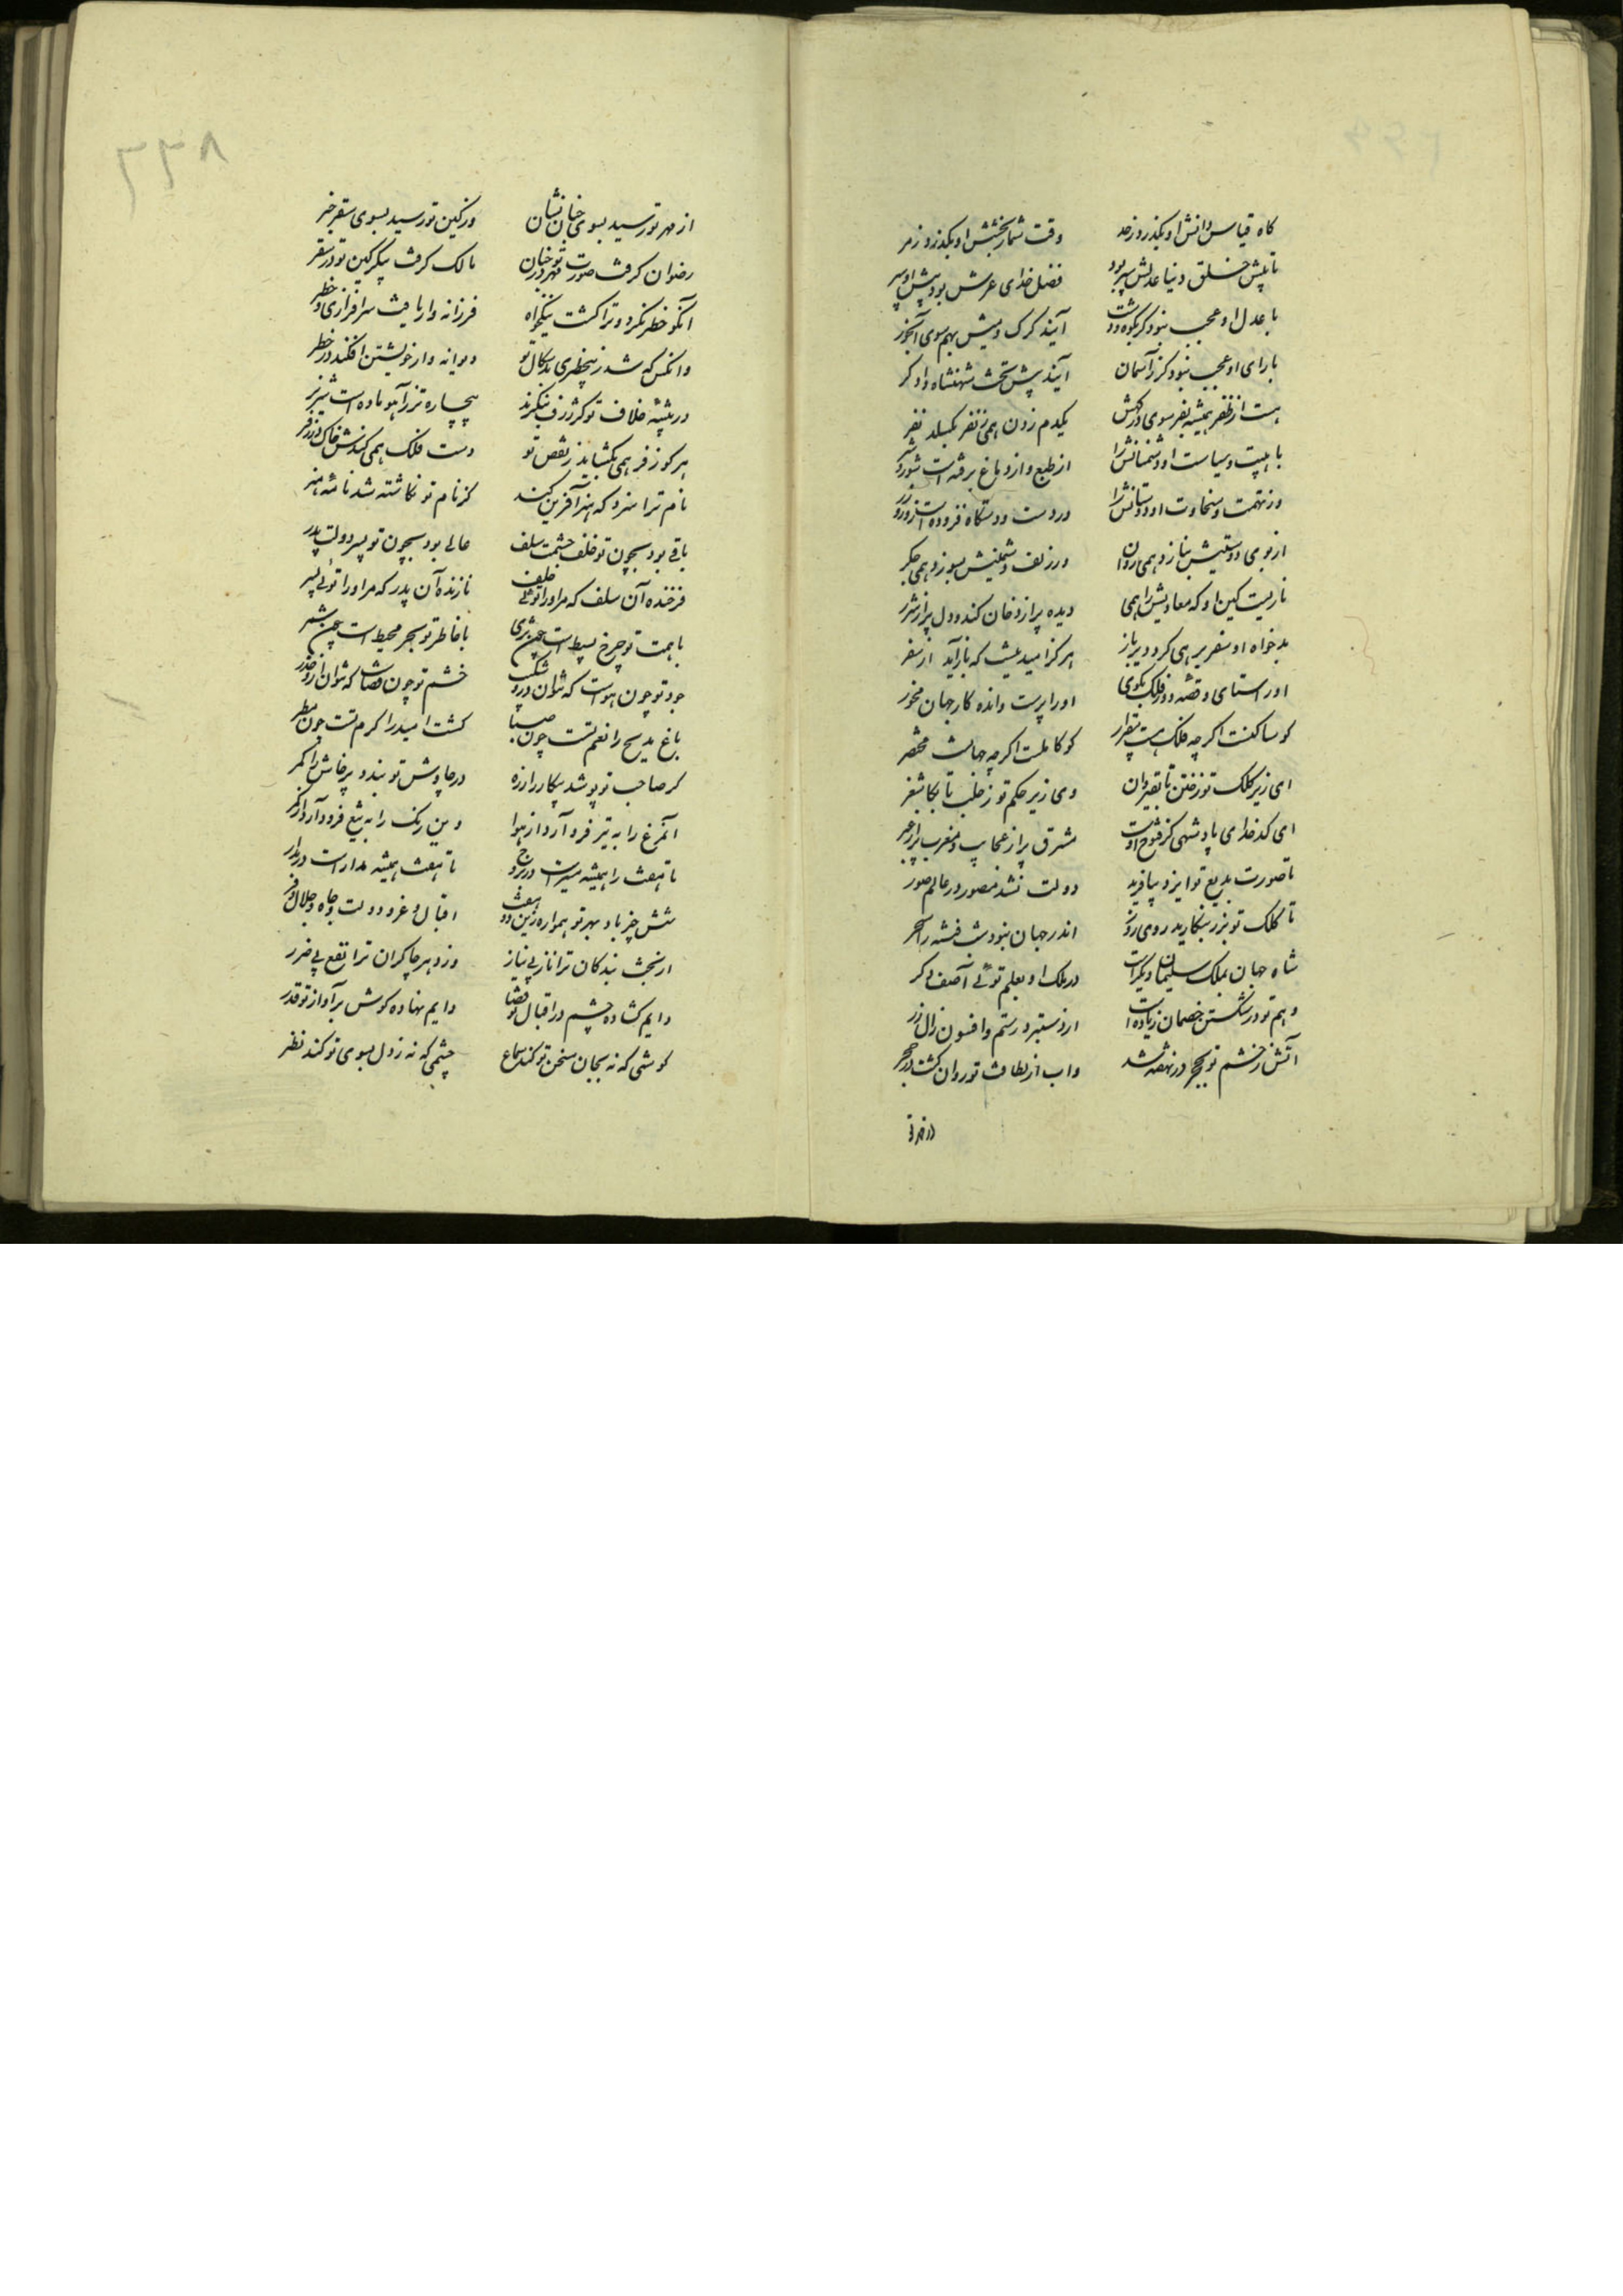 گاه قیاس دانش او بگذرد ز حد وقت شمار بخشش او بگذرد ز مر
تا پیش خلق دنیا عدلش سپر بود فضل خدای عرش بود پیش او سپر
با عدل او عجب نبود گر بکوه و دشت آیند گرگ و میش بهم سوی آبخور
با رای او عجب نبود کز آسمان آیند پیش تخت شهنشاه دادگر
هست از ظفر همیشه نفر سوی درگهش یکدم زدن همی ز نفر نگسلد نفر
با هیبت و سیاست او دشمنانش را از طبع و از دماغ برفته است شور و شر
وز نهمت و سخاوت او دوستانش را در دست و دستگاه فزوده است زور و زر
از بوی دوستیش بنازد همی روان وز تف دشمنیش بسوزد همی جگر
ناریست کین او که معادیش را همی دیده پر از دخان کند و دل پر از شرر
بدخواه او سفر برهی کرد دیرباز هرگز امید نیست که باز آید از سفر
او را ستای و قصه دور فلک مگوی او را پرست و انده کار جهان مخور
کو ساکنست اگر چه فلک هست بیقرار کو کاملست اگر چه جهانست مختصر
ای زیر کلک تو ز ختن تا بقیروان وی زیر حکم تو ز حلب تا بکاشغر
ای کدخدای پادشهی کز فتوح اوست مشرق پر از عجایب و مغرب پر از عبر
تا صورت بدیع تو ایزد بیافرید دولت نشد مصور در عالم صور
تا کلک تو بزر بنگارید روی روز اندر جهان نبود شب فتنه را سحر
شاه جهان بملک سلیمان دیگر است در ملک او بعلم توئی آصف دگر
وهم تو در شکستن خصمان زیادت است از دستبرد رستم و افسون زال زر
آتش ز خشم تو بحجر در نهفته شد واب از لطافت تو روان گشت در حجر
از مهر تو رسید بسوی جنان نشان وز کین تو رسید بسوی سقر خبر
رضوان گرفت صورت مهر تو در جنان مالک گرفت پیکر کین تو در سقر
آنکو خطر نکرد و ترا گشت نیکخواه فرزانه وار یافت سرافرازی و خطر
وانکس که شد ز بیخطری بدسگال تو دیوانه وار خویشتن افکند در خطر
در بیشه خلاف تو گر ژرف بنگرند بیچاره تر ز آهو ماده است شیر نر
هر کو ز فر همی بگشاید ز نقص تو دست فلک همی کندش خاک در زفر
نام ترا سزد که هنر آفرین کند کز نام تو نگاشته شد نامه هنر
باقی بود بچون تو خلف حشمت سلف عالی بود بچون تو پسر دولت پدر
فرخنده آن سلف که مر او را توئی خلف نازنده آن پدر که مر او را توئی پسر
با همت تو چرخ بسیط است چون ثری با خاطر تو بحر محیط است چون شمر
جود تو چون هواست که نتوان درو شکیب خشم تو چون قضاست که نتوان ازو حذر
باغ مدیح را نعم تست چون صبا کشت امید را کرم تست چون مطر
گر صاحب تو پوشد پیکار را زره ور چاوش تو بندد پرخاش را کمر
آنمرغ را به تیر فرود آرد از هوا وین رنگ را به تیغ فرود آرد از کمر
تا هفت را همیشه مسیر است در بروج تا هفت را همیشه مدار است در مدار
شش چیز باد بهر تو همواره زین دو هفت اقبال و عز و دولت و جاه و جلال و فر
از بخت بندگان ترا ناز بی نیاز وز دهر چاکران ترا نفع بی ضرر
دایم گشاده چشم در اقبال تو قضا دایم نهاده گوش بر آواز تو قدر
گوشی که نه بجان سخن تو کند سماع چشمی که نه ز دل بسوی تو کند نظر
۳۳۸